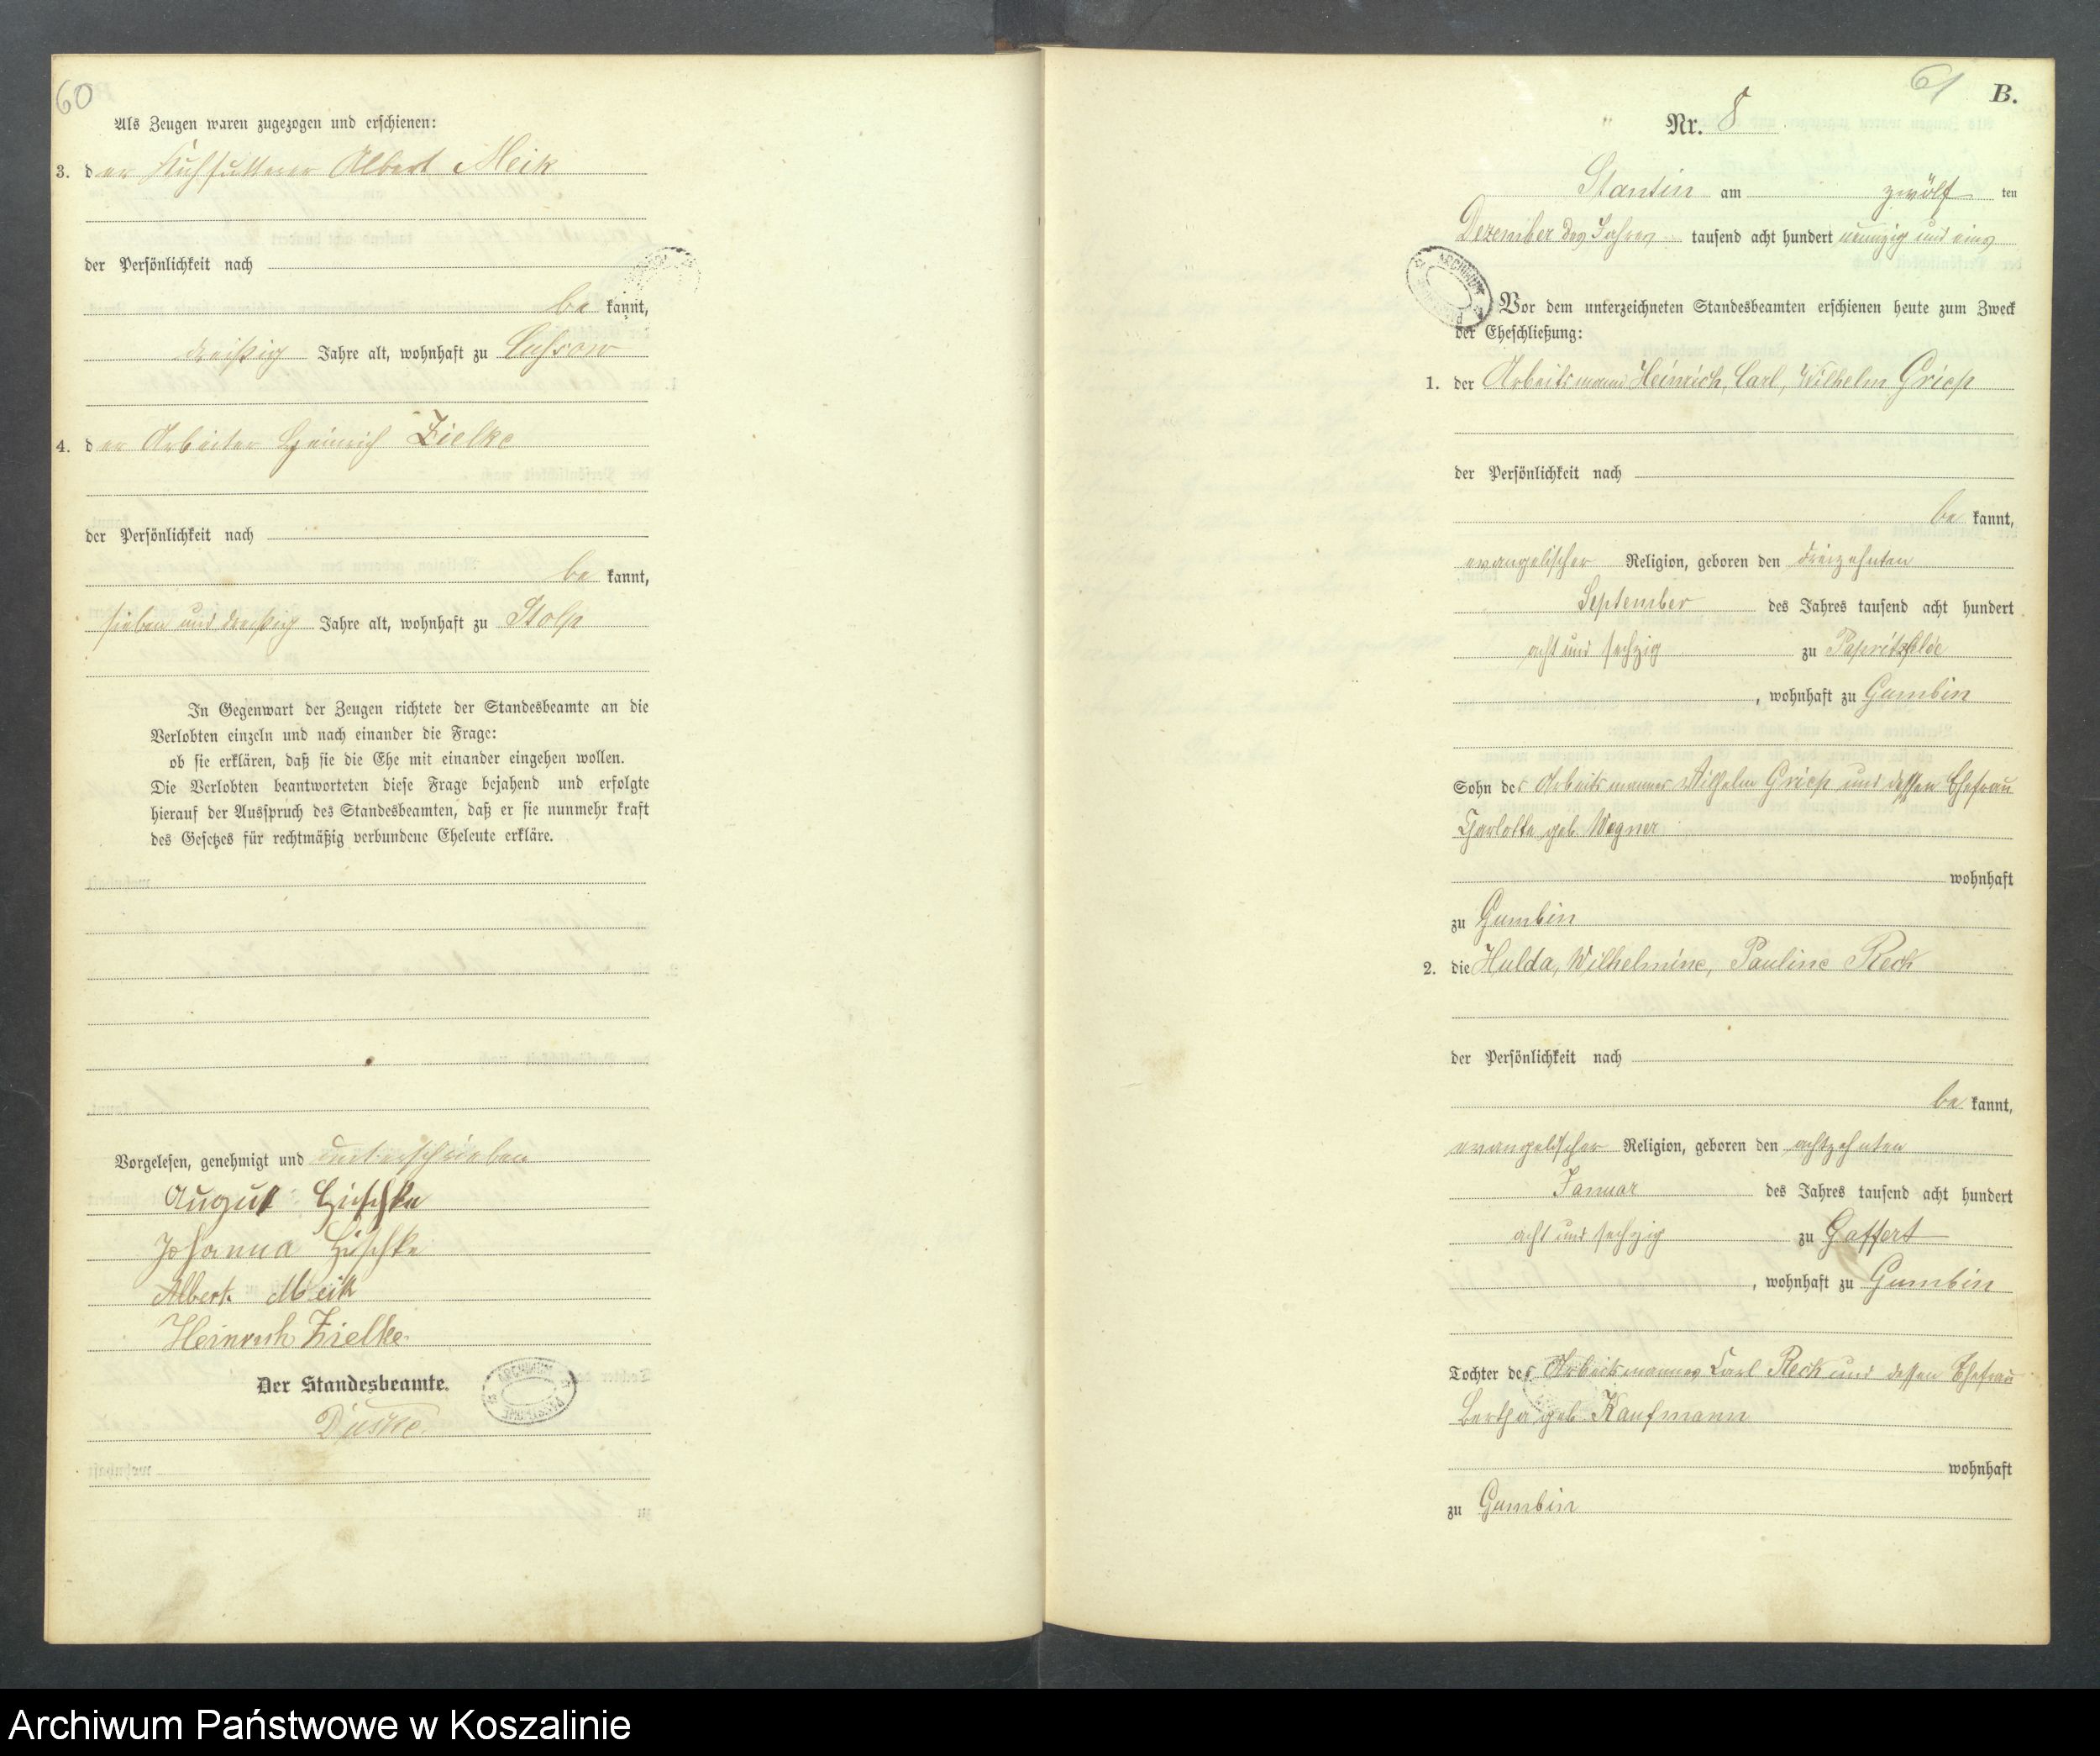 60
Als Zeugen waren zugezogen und erschienen:
3. der Kuhfutterer Albert Meik
der Persönlichkeit nach
be kannt,
dreißig Jahre alt, wohnhaft zu
4. der Arbeiter Heinrich Zielke
der Persönlichkeit nach
be kannt,
sieben und dreißig Jahre alt, wohnhaft zu Stolp
In Gegenwart der Zeugen richtete der Standesbeamte an die
Verlobten einzeln und nach einander die Frage:
ob sie erklären, daß sie die Ehe mit einander eingehen wollen.
Die Verlobten beantworteten diese Frage bejahend und erfolgte
hierauf der Ausspruch des Standesbeamten, daß er sie nunmehr kraft
des Gesetzes für rechtmäßig verbundene Eheleute erkläre.
Vorgelesen, genehmigt und unterschrieben
August
Johanna
Albert Meik
Heinrich Zielke
Der Standesbeamte.
61 B.
Nr. 8
Stantin am zwölf ten
Dezember des Jahres tausend acht hundert neunzig und eins
Vor dem unterzeichneten Standesbeamten erschienen heute zum Zweck
der Eheschließung:
1. der Arbeitsmann Heinrich, Carl, Wilhelm Griep
der Persönlichkeit nach
be kannt,
evangelischer Religion, geboren den dreizehnten
September des Jahres tausend acht hundert
acht und sechzig zu Papritzfelde
, wohnhaft zu Gumbin
Sohn des Arbeitsmannes Wilhelm Griep und dessen Ehefrau
Charlotte geb. Wegner
wohnhaft
zu Gumbin
2. die Hulda, Wilhelmine, Pauline Reck
der Persönlichkeit nach
be kannt,
evangelischer Religion, geboren den achtzehnten
Januar des Jahres tausend acht hundert
acht und sechzig zu Gaffert
, wohnhaft zu Gumbin
Tochter des Arbeitsmannes Carl Reck und dessen Ehefrau
Bertha geb. Kaufmann
wohnhaft
zu Gumbin
Archiwum Państwowe w Koszalinie